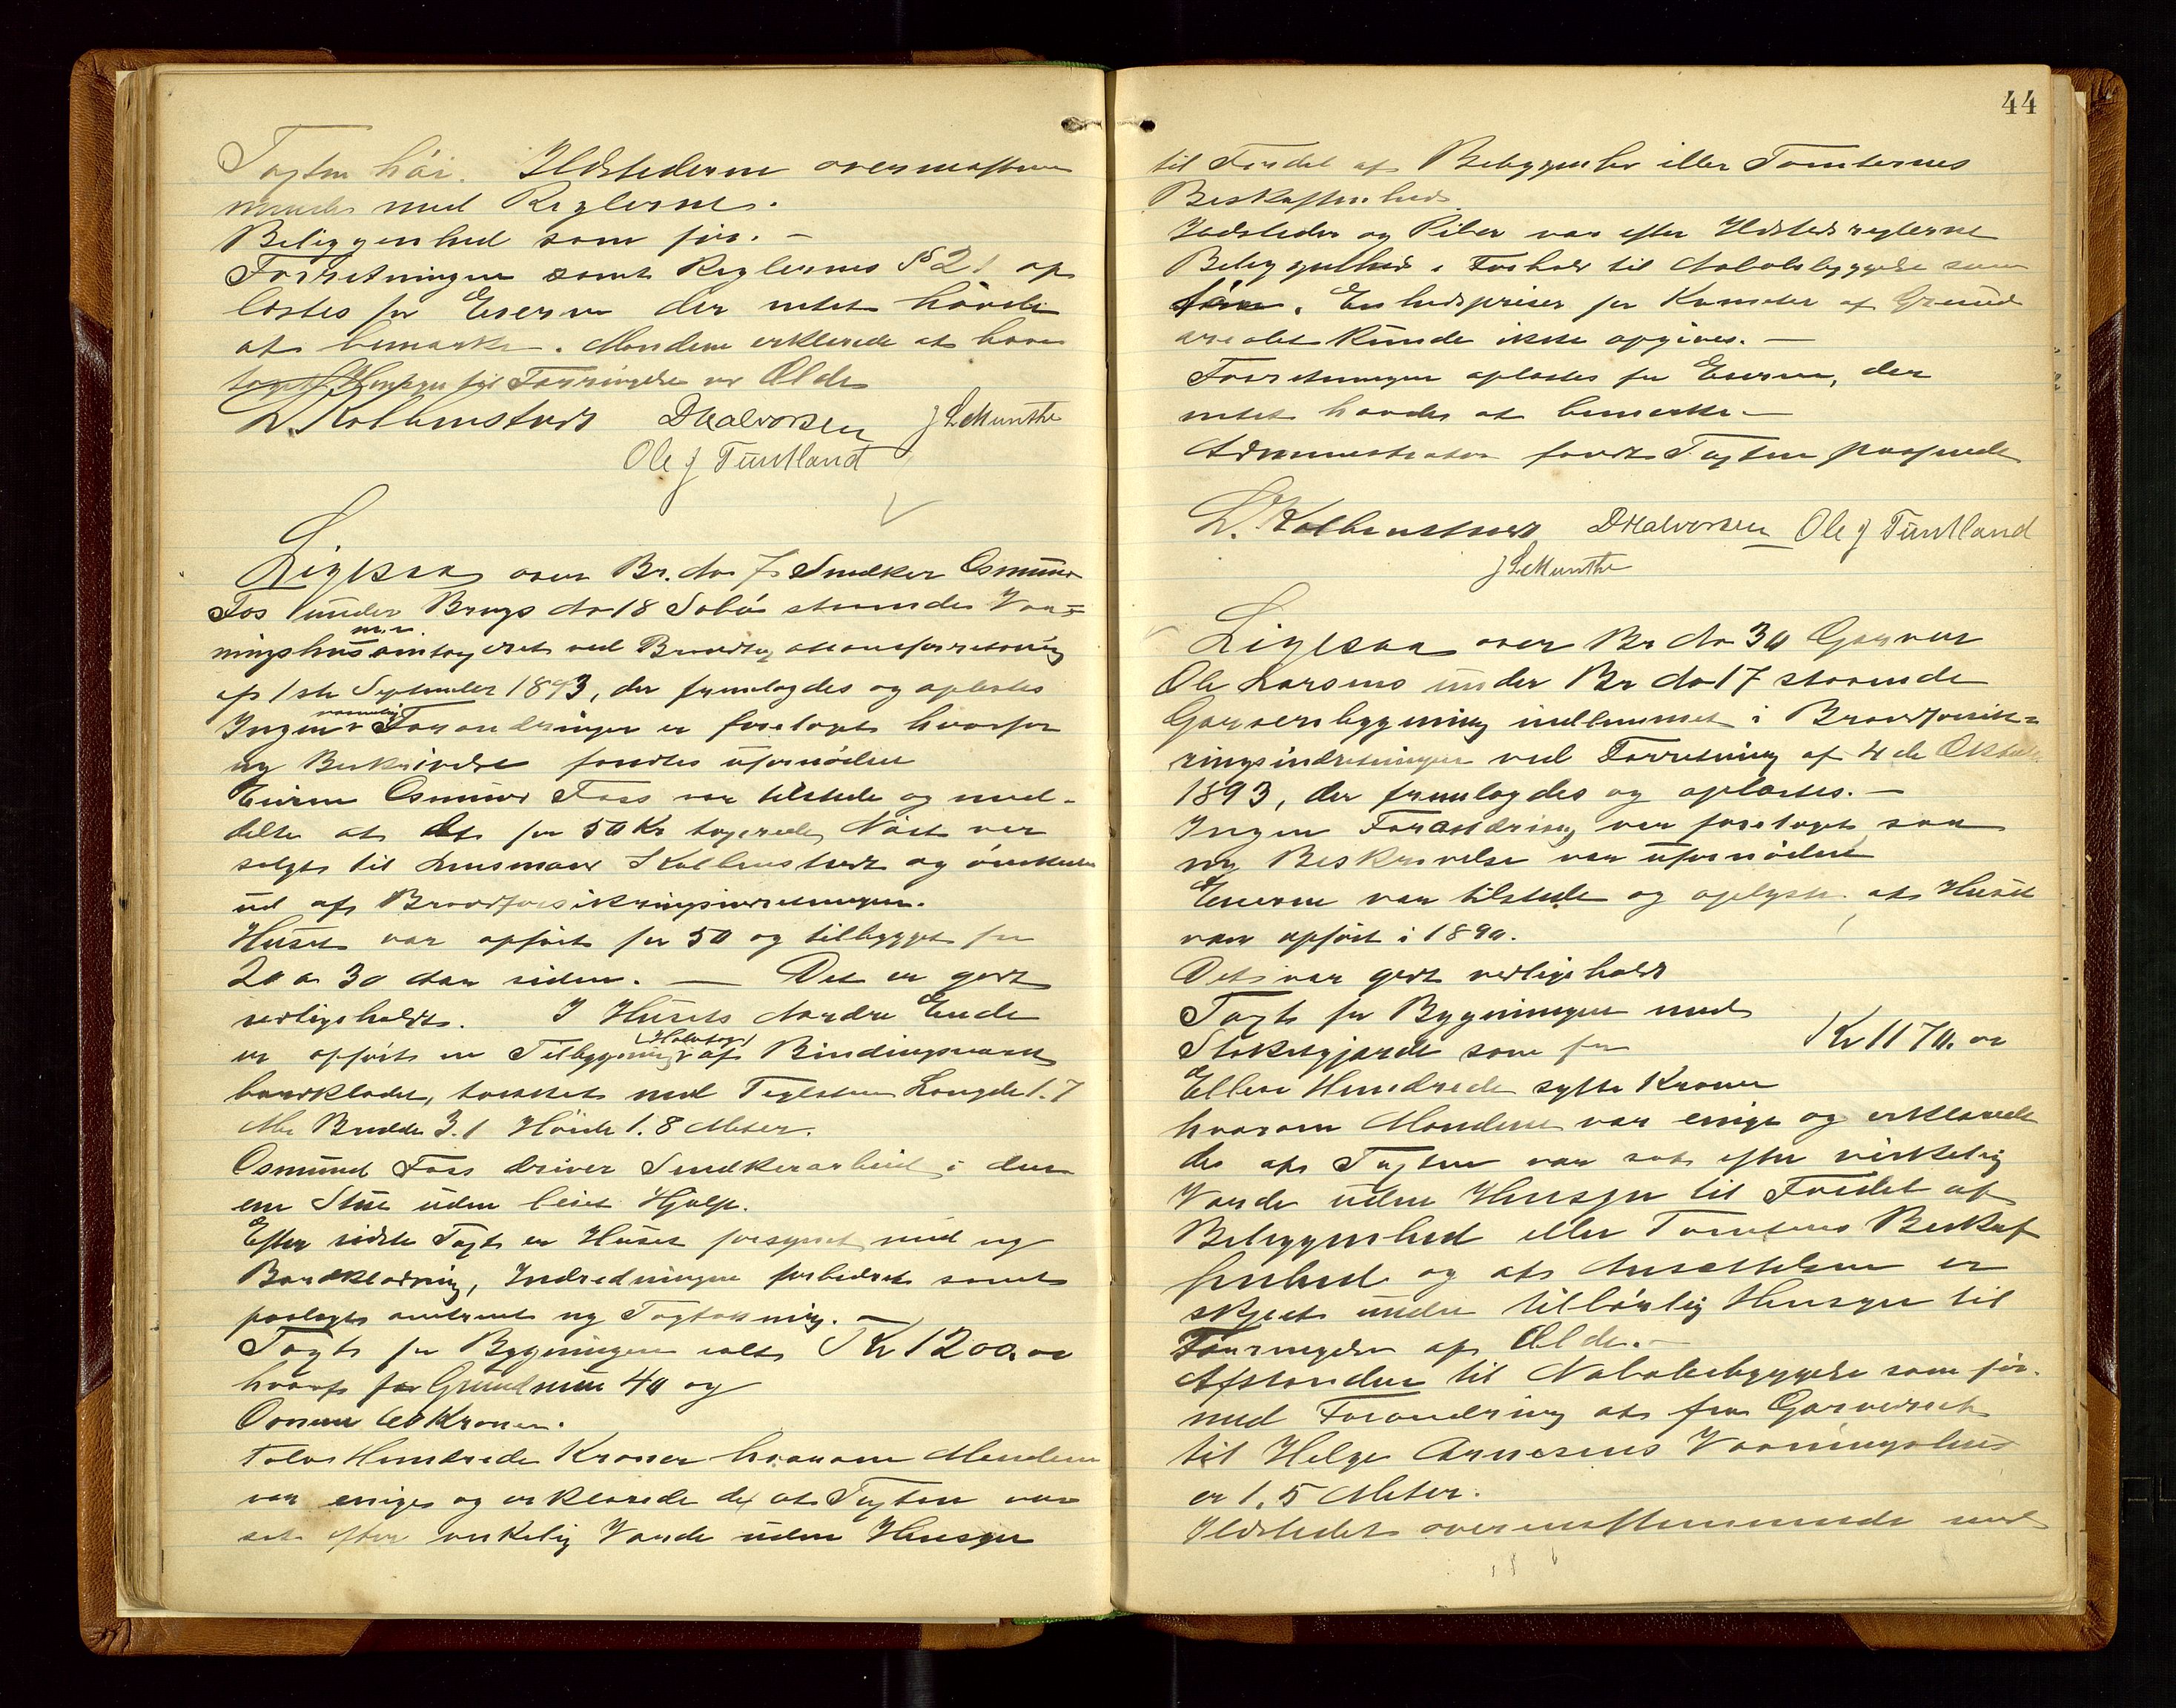 Taxten höi. Ildstederne overensstem
mende med Reglerne.
Beliggenhed som för. —
Forretningen samt Reglernes § 21 op
læstes for Eieren der intet havde
at bemærke. Mændene erklærede at have
taget Hensyn til Forringelse ved Ælde
L. Kolbenstvedt DHalvorsen J LMunthe
Ole J Tuntland
Ligesaa over Br. No 7 Snedker Osmund
Fos under Brugs No 18 Solbö staaende Vaa=
m.v.
ningshus omtaxeret ved Brandtaxationsforretning
af 1ste September 1893, der fremlagdes og oplæstes
væsentlig
Ingen Forandringer er foretaget hvorfor
ny Beskrivelse fandtes ufornöden
Eieren Osmund Foss var tilstede og med-
delte at det for 50 Kr taxerede Nöst var
solgt til Lensmand Kolbenstvedt og önskedes
ud af Brandforsikringsindretningen.
Huset var opfört for 50 og tilbygget for
20 a 30 Aar siden. — Det er godt
vedligeholdt. I Husets Nordre Ende
Halvtag
er opfört en Tilbygning af Bindingsværk
bordklædt, tækket med Teglsten Længde 1.7
Mtr Bredde 3.1 Höide 1.8 Meter.
Osmund Foss driver Snedkerarbeid i den
ene Stue uden leiet Hjælp.
Efter sidste Taxt er Huset forsynet med ny
Bordklædning, Indredningen forbedret samt
paalagt omtrent ny Tagtækning. —
Taxt for Bygningen ialt Kr 1200.00
hvoraf for Grundmur 40 og
Ovnene 60 Kroner.
Tolv Hundrede Kroner hvorom Mændene
var enige og erklærede de at Taxten var
sat efter virkelig Værde uden Hensyn
44
til Fordel af Beliggenhed eller Tomternes
Beskaffenhed
Ildsteder og Piber var efter Ildstedsreglerne
Beliggenhed i Forhold til Nabobebyggelse som
före. Enhedspriser for Kvmeter af Grund
arealet kunde ikke opgives. —
Forretningen oplæstes for Eieren, der
intet havde at bemærke. —
Administrator fandt Taxten passende
L. Kolbenstvedt DHalvorsen Ole J Tuntland
J LMunthe
Ligesaa over Br No 30 Garver
Ole Larsens under Br No 17 staaende
Garveribygning indlemmet i Brandforsik=
ringsindretningen ved Forretning af 4de Oktober
1893, der fremlagdes og oplæstes. —
Ingen Forandring var foretaget saa
ny Beskrivelse var ufornöden
Eieren var tilstede og oplyste at Huset
var opfört i 1890.
Det var godt vedligeholdt
Taxt for Bygningen med
Stokkegjærde som för Kr 1170.00
Elleve Hundrede sytti Kroner
hvorom Mændene var enige og erklærede
de at Taxten var sat efter virkelig
Værde uden Hensyn til Fordel af
Beliggenhed eller Tomtens Beskaf
fenhed og at Ansættelsen er
skjeet under tilbörlig Hensyn til
Forringelse af Ælde. —
Afstanden til Nabobebyggelse som för
med Forandring at fra Garveriet
til Helge Arnesens Vaaningshus
er 1.5 Meter.
Ildstedet overensstemmende med